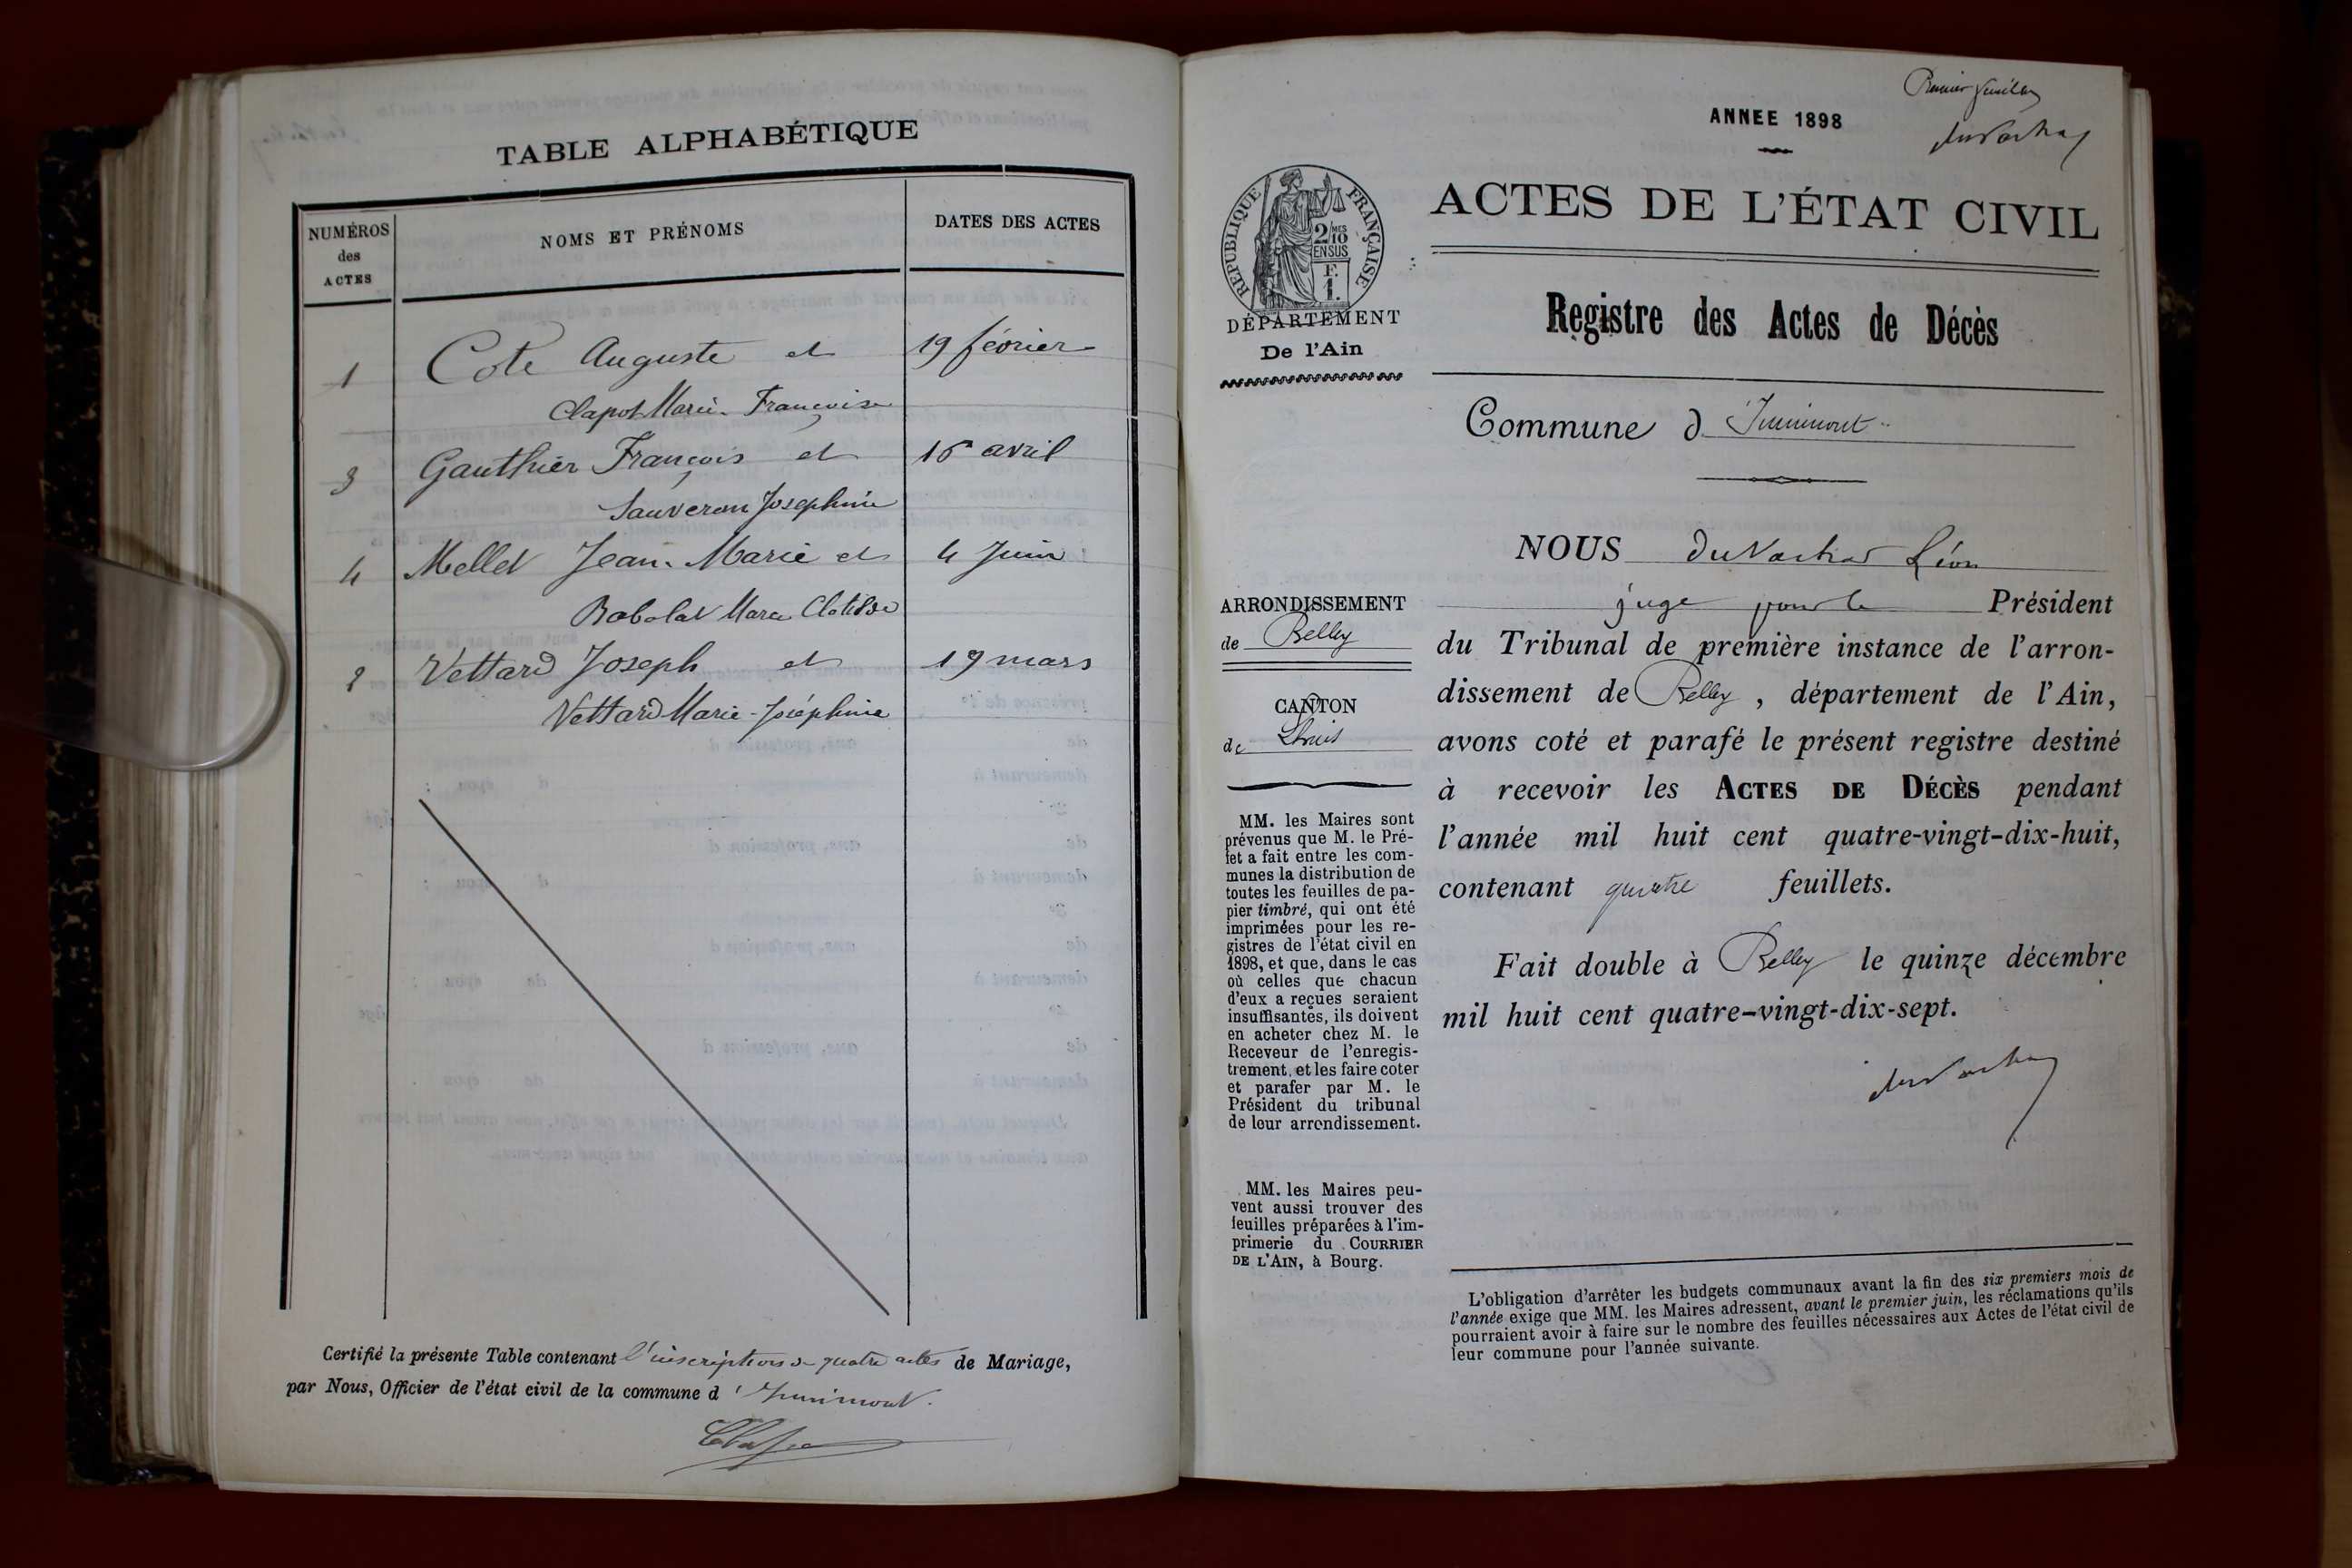 TABLE ALPHABÉTIQUE
NUMÉROS
des
ACTES
NOMS ET PRÉNOMS
DATES DES ACTES
1 Cote Auguste et 19 février
Clapot Marie Françoise
3 Gauthier François et 16 avril
Sauveron Joséphine
4 Mellet Jean-Marie et 4 Juin
Bobolat Marie Clotilde
2 Vettard Joseph et 19 mars
Vettard Marie-Joséphine
Certifié la présente Table contenant l'inscription de quatre actes de Mariage,
par Nous, Officier de l'état civil de la commune d'Innimont.
Premier feuillet
ANNEE 1898
REPUBLIQUE FRANÇAISE
2/10 MES
EN SUS
F.
1.
DÉPARTEMENT
De l'Ain
ACTES DE L'ÉTAT CIVIL
Registre des Actes de Décès
Commune d'Innimont
NOUS Léon
juge pour le Président
du Tribunal de première instance de l'arron-
dissement de Belley, département de l'Ain,
avons coté et parafé le présent registre destiné
à recevoir les ACTES DE DÉCÈS pendant
l'année mil huit cent quatre-vingt-dix-huit,
contenant quatre feuillets.
Fait double à Belley le quinze décembre
mil huit cent quatre-vingt-dix-sept.
ARRONDISSEMENT
de Belley
CANTON
de Lhuis
MM. les Maires sont
prévenus que M. le Pré-
fet a fait entre les com-
munes la distribution de
toutes les feuilles de pa-
pier timbré, qui ont été
imprimées pour les re-
gistres de l'état civil en
1898, et que, dans le cas
où celles que chacun
d'eux a reçues seraient
insuffisantes, ils doivent
en acheter chez M. le
Receveur de l'enregis-
trement, et les faire coter
et parafer par M. le
Président du tribunal
de leur arrondissement.
MM. les Maires peu-
vent aussi trouver des
feuilles préparées à l'im-
primerie du COURRIER
DE L'AIN, à Bourg.
L'obligation d'arrêter les budgets communaux avant la fin des six premiers mois de
l'année exige que MM. les Maires adressent, avant le premier juin, les réclamations qu'ils
pourraient avoir à faire sur le nombre des feuilles nécessaires aux Actes de l'état civil de
leur commune pour l'année suivante.